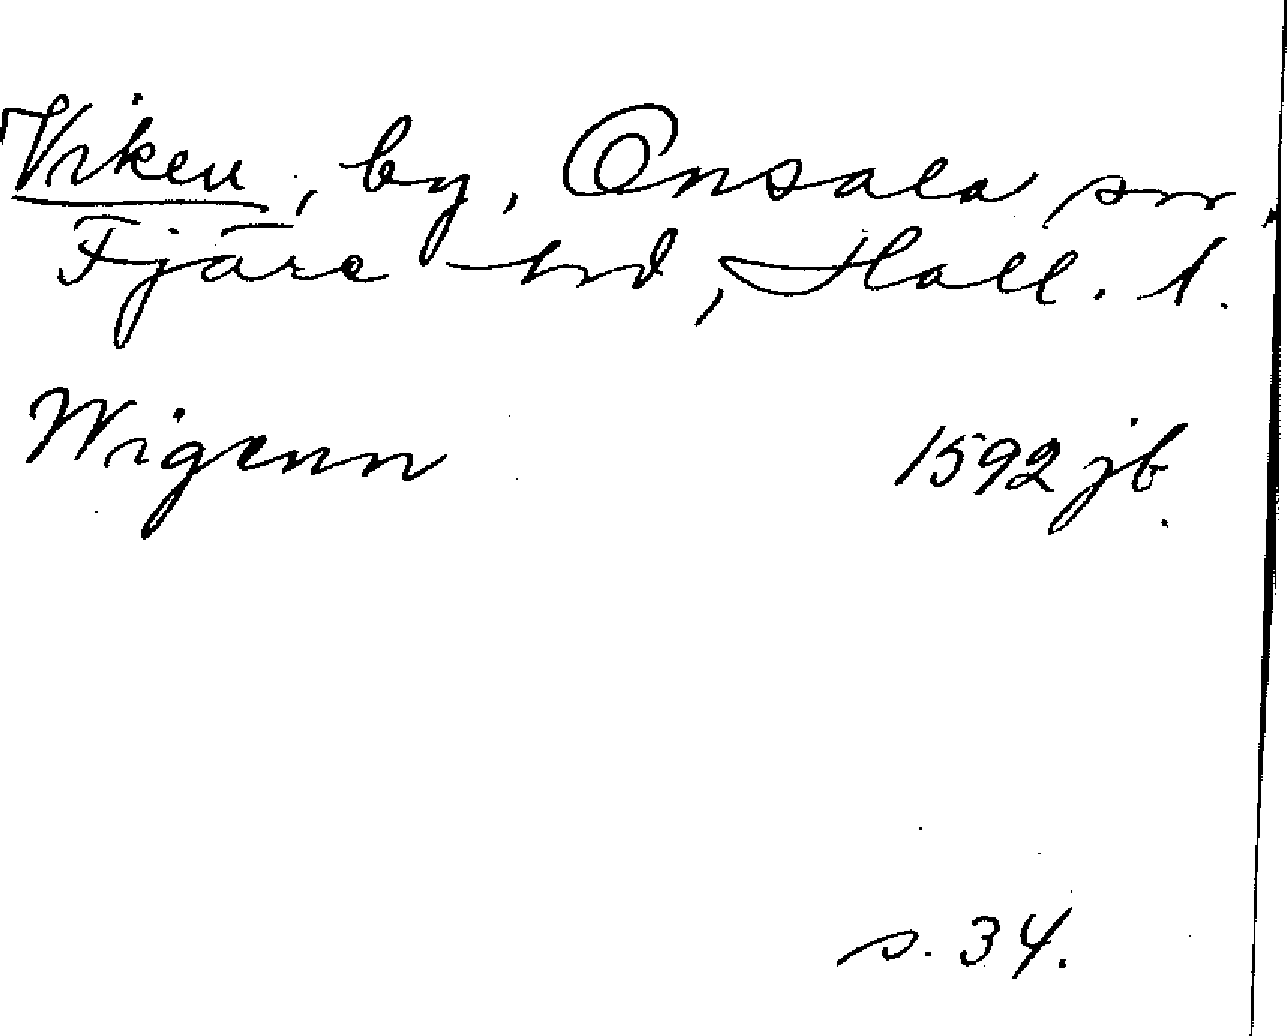 Viken, by, Onsala sn,
Fjäre hd, Hall. l.
Wigenn 1592 jb.
s. 34.